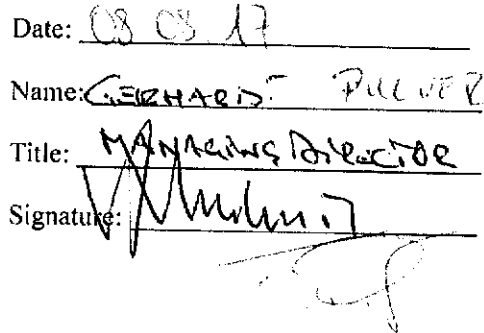 Date: 08 08 17
Name: GERHARD PULVER
Title: MANAGING DIRECTOR
Signature: